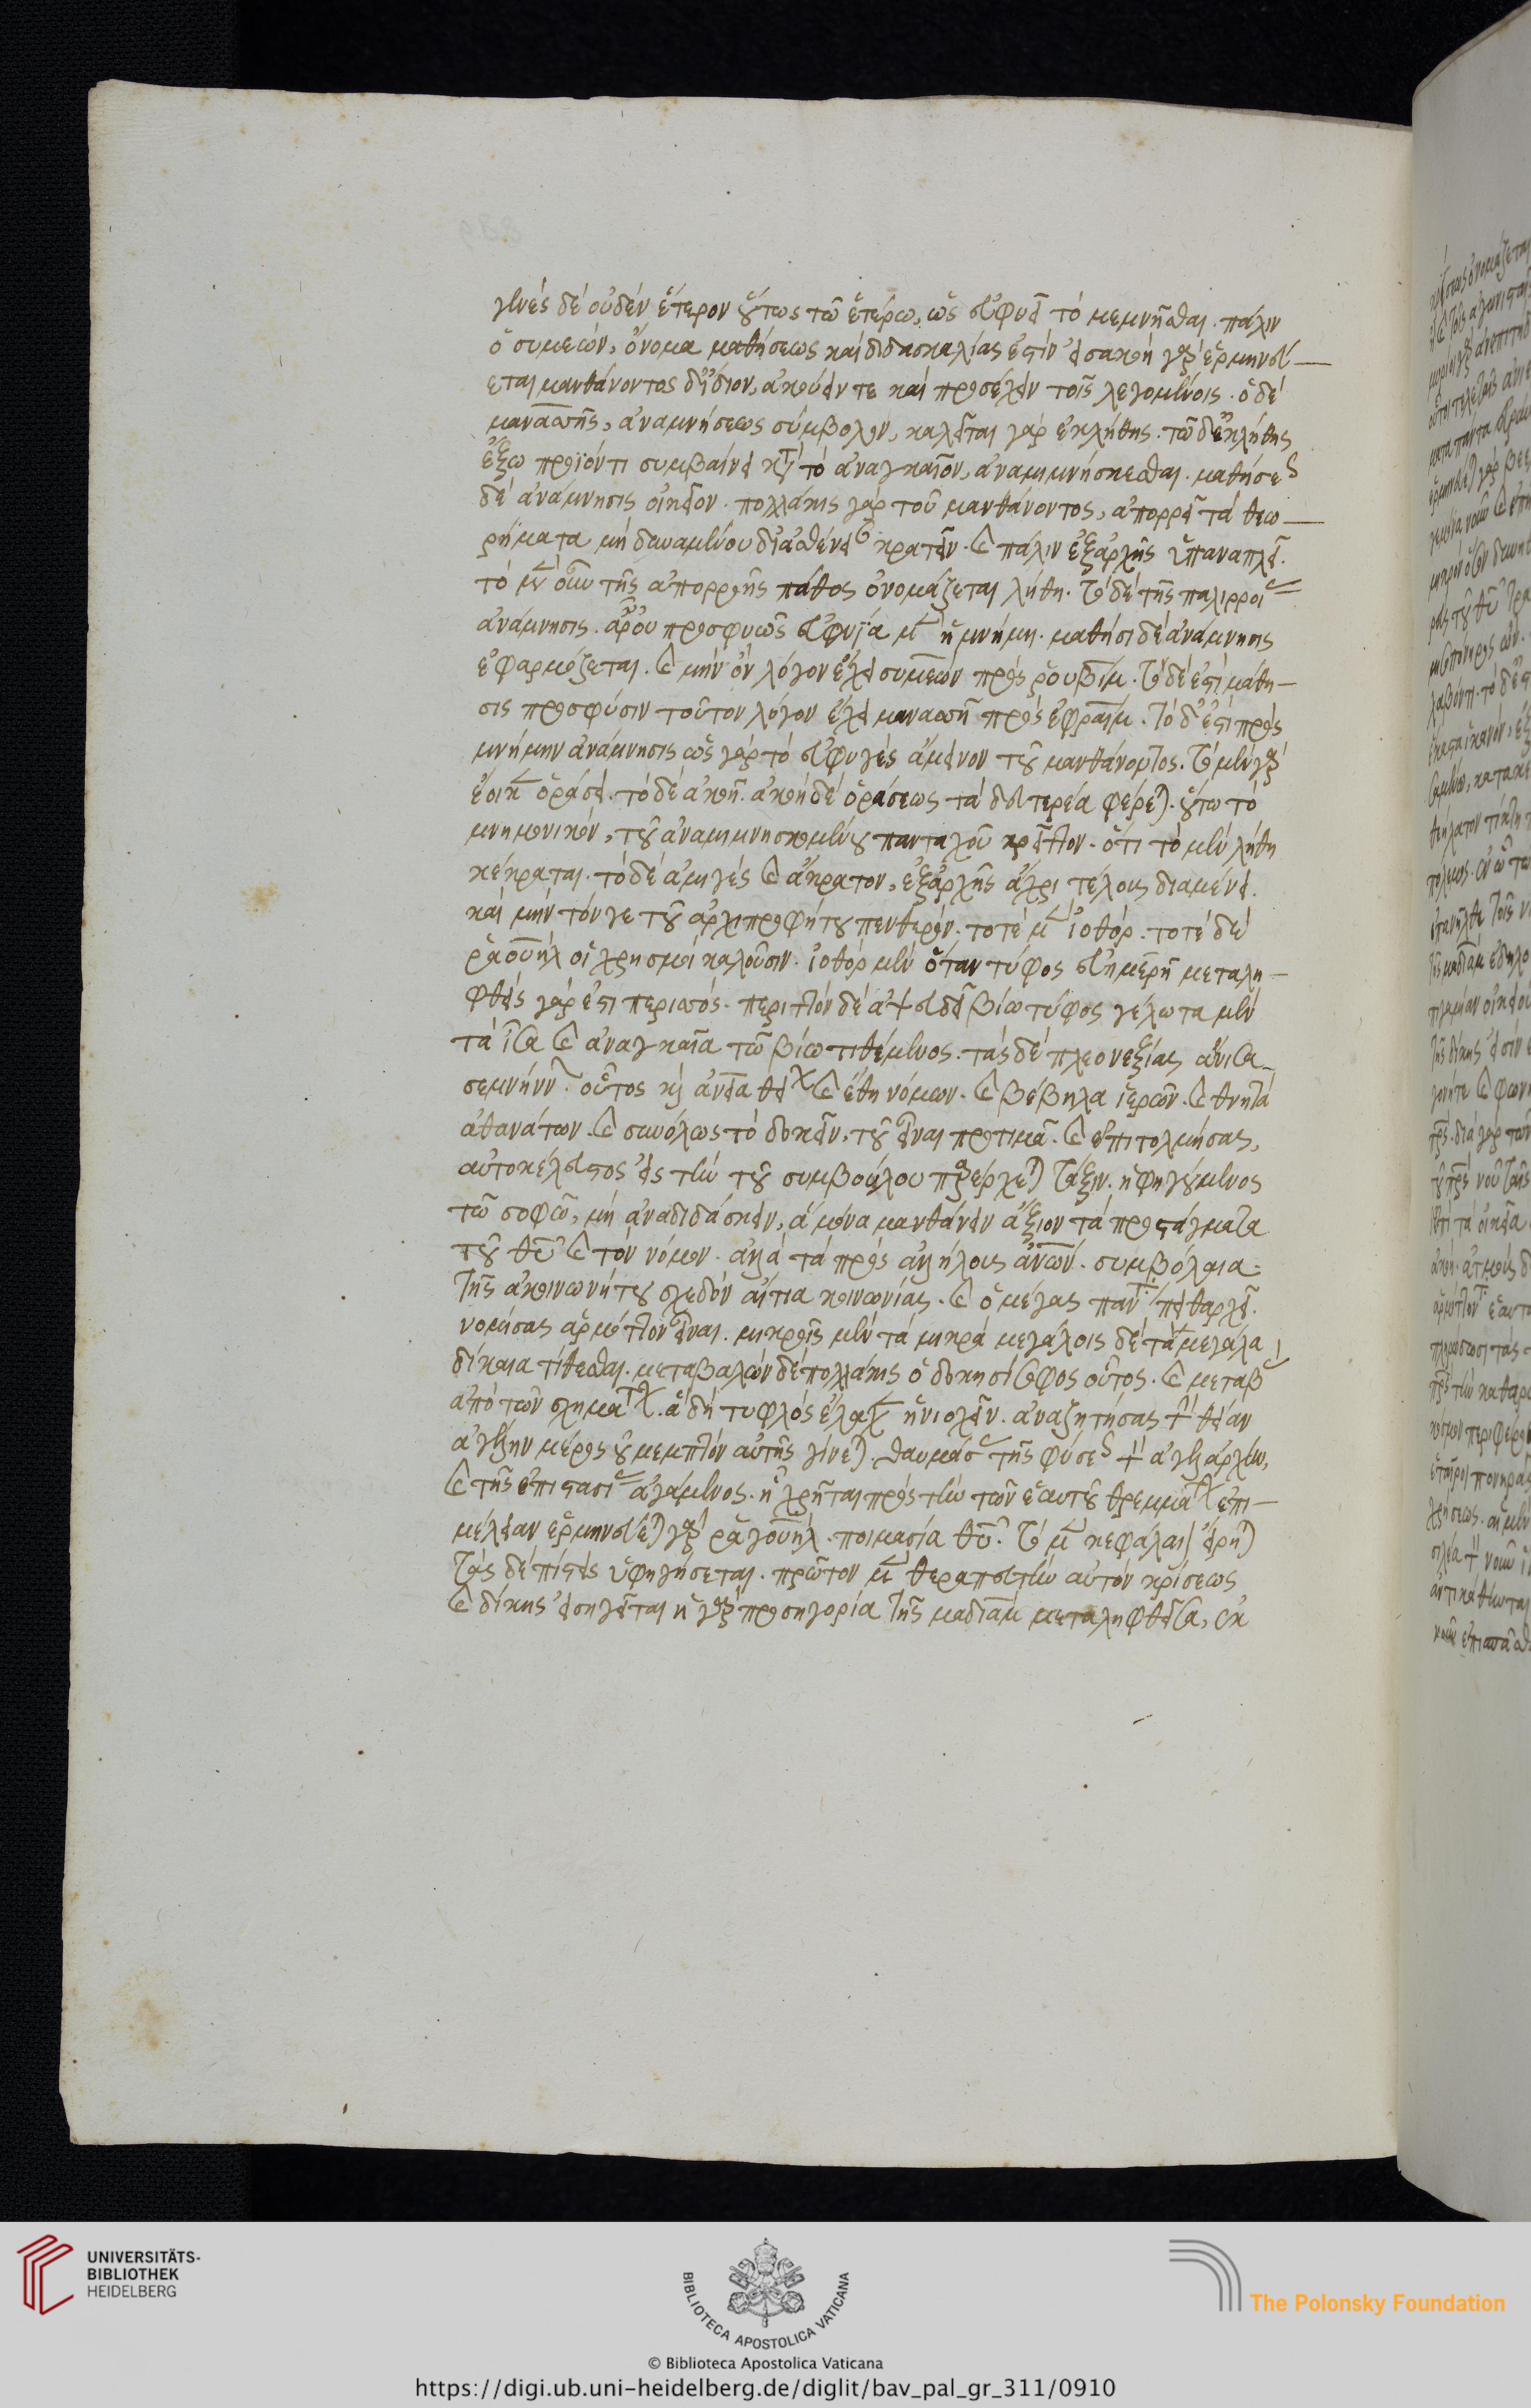 γενὲς δὲ οὐδὲν ἕτερον οὕτως τῶ ἑτέρω, ὡς εὐφυεῖ τὸ μεμνῆσθαι. πάλιν
ὁ συμεών, ὄνομα μαθήσεως καὶ διδασκαλίας ἐστίν εἰσακοὴ γὰρ ἑρμηνεύ
εται μανθάνοντος δ' ἴδιον, ἀκούειν τε καὶ προσέχειν τοῖς λεγομένοις. ὁ δὲ
μανασσῆς, ἀναμνήσεως σύμβολον, καλεῖται γὰρ ἐκ λήθης. τῶ δ' ἐκ λήθης
ἔξω προϊόντι συμβαίνει κατὰ τὸ ἀναγκαῖον, ἀναμιμνήσκεσθαι. μαθήσεως
δὲ ἀνάμνησις οἰκεῖον. πολλάκις γὰρ τοῦ μανθάνοντος, ἀπορρεῖ τὰ θεω
ρήματα μὴ δυναμένου δι' ἀσθένειαν κρατεῖν. καὶ πάλιν ἐξ ἀρχῆς ὑπαναπλεῖ.
τὸ μὲν οὖν τῆς ἀπορροῆς πάθος ὀνομάζεται λήθη. τὸ δὲ τῆς παλιρροίας
ἀνάμνησις. ἆρ' οὖν προσφυῶς εὐφυΐα μὲν ἡ μνήμη. μαθήσι δὲ ἀνάμνησις
ἐφαρμόζεται. καὶ μὴν ὃν λόγον ἔχει συμεὼν πρὸς ρουβίμ. τὸ δέ ἐστι μάθη
σις πρὸς φύσιν τοῦτον λόγον ἔχει μανασσῆ πρὸς ἐφραΐμ. τὸ δ' ἐστὶ πρὸς
μνήμην ἀνάμνησις ὡς γὰρ τὸ εὐφυγὲς ἄμεινον τοῦ μανθάνοντος. τὸ μὲν γὰρ
ἔοικεν ὁράσει. τὸ δὲ ἀκοῆ. ἀκοὴ δὲ ὁράσεως τὰ δευτερέα φέρεται. οὕτω τὸ
μνημονικόν, τοῦ ἀναμιμνησκομένου πανταχοῦ κρεῖττον. ὅτι τὸ μὲν λήθη
κέκραται. τὸ δὲ ἀμιγὲς καὶ ἄκρατον, ἐξ ἀρχῆς ἄχρι τέλους διαμένει.
καὶ μὴν τόν γε τοῦ ἀρχιπροφήτου πενθερόν. τοτὲ μὲν ἰοθόρ. τοτὲ δὲ
ραουὴλ οἱ χρησμοὶ καλοῦσιν. ἰοθὸρ μὲν ὅταν τύφος εὐημερῆ μεταλη
φθεὶς γάρ ἐστι περισσός. περιττὸν δὲ ἀψευδεῖ βίω τύφος γέλωτα μὲν
τὰ ἴσα καὶ ἀναγκαῖα τῶ βίω τιθέμενος. τὰς δὲ πλεονεξίας ἄνισα
σεμνύνων. οὗτος καὶ ἀνθρώπεια θείων καὶ ἔθη νόμων. καὶ βέβηλα ἱερῶν. καὶ θνητὰ
ἀθανάτων. καὶ συνόλως τὸ δοκεῖν, τοῦ εἶναι προτιμᾶ. καὶ ἐπιτολμήσας,
αὐτοκέλευστος εἰς τὴν τοῦ συμβούλου παρέρχεται τάξιν. ὑφηγούμενος
τῶ σοφῶ, μὴ ἀναδιδάσκειν, ἃ μόνα μανθάνειν ἄξιον τὰ προστάγματα
τοῦ θεοῦ καὶ τὸν νόμον. ἀλλὰ τὰ πρὸς ἀλλήλους ἀνθρώπων. συμβόλαια
τῆς ἀκοινωνήτου σχεδὸν αἴτια κοινωνίας. καὶ ὁ μέγας πάντα πειθαρχεῖ.
νομίσας ἁρμόττον εἶναι. μικροῖς μὲν τὰ μικρὰ μεγάλοις δὲ τὰ μεγάλα
δίκαια τίθεσθαι. μεταβαλὼν δὲ πολλάκις ὁ δοκησίσοφος οὗτος. καὶ μεταβὰς
ἀπὸ τῶν σχημάτων. ἃ δὴ τυφλὸς ἔλαχεν ἡνιοχεῖν. ἀναζητήσας τὴν θείαν
ἀγέλην μέρος οὐ μεμπτὸν αὐτῆς γίνεται. θαυμάσας τῆς φύσεως τὸν ἀγελάρχην,
καὶ τῆς ἐπιστασίας ἀγάμενος. ἧ χρῆται πρὸς τὴν τῶν ἑαυτοῦ θρεμμάτων ἐπι
μέλειαν ἑρμηνεύεται γὰρ ραγουήλ. ποιμασία θεοῦ. τὸ μὲν κεφάλαιον εἴρηται
τὰς δὲ πίστεις ὑφηγήσεται. πρῶτον μὲν θεραπευτὴν αὐτὸν κρίσεως
καὶ δίκης εἰσηγεῖται ἡ γὰρ προσηγορία τῆς μαδιὰμ μεταληφθεῖσα, ἐκ
UNIVERSITÄTS-
BIBLIOTHEK
HEIDELBERG
BIBLIOTECA APOSTOLICA VATICANA
The Polonsky Foundation
© Biblioteca Apostolica Vaticana
https://digi.ub.uni-heidelberg.de/diglit/bav_pal_gr_311/0910